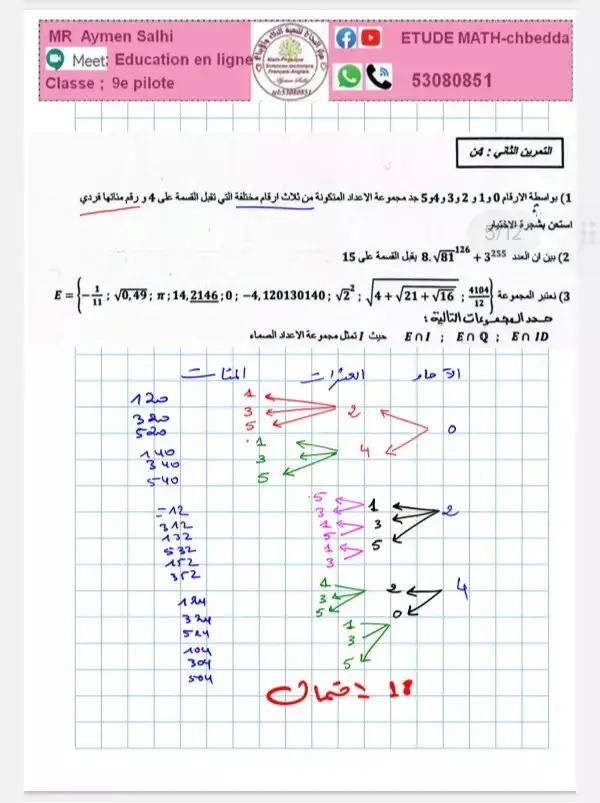 MR Aymen Salhi
Meet: Education en ligne
Classe ; 9e pilote
ETUDE MATH-chbedda
53080851
التمرين الثاني : 4ن
1) بواسطة الارقام 0 و 1 و 2 و 3 و 4 و 5 جد مجموعة الاعداد المتكونة من ثلاث ارقام مختلفة التي تقبل القسمة على 4 و رقم مئاتها فردي
استعن بشجرة الاختيار
3/12
2) بين ان العدد 8.√81¹²⁶ + 3²⁵⁵ يقبل القسمة على 15
3) نعتبر المجموعة E = {-1/11 ; √0,49 ; π ; 14,2146 ; 0 ; -4,120130140 ; √2² ; √(4 + √(21 + √16)) ; 4104/12}
حدد المجموعات التالية :
E∩I ; E∩Q ; E∩ID حيث I تمثل مجموعة الاعداد الصماء
الآحاد العشرات المئات
120 1
320 3 2
520 5 0
140 1
340 3 4
540 5
5
-12 3 1 2
312 1 3
132 5
532 1 5
152 3
352
124 1 2 4
324 3
524 5 0
104 1
304 3
504 5
18 احتمال